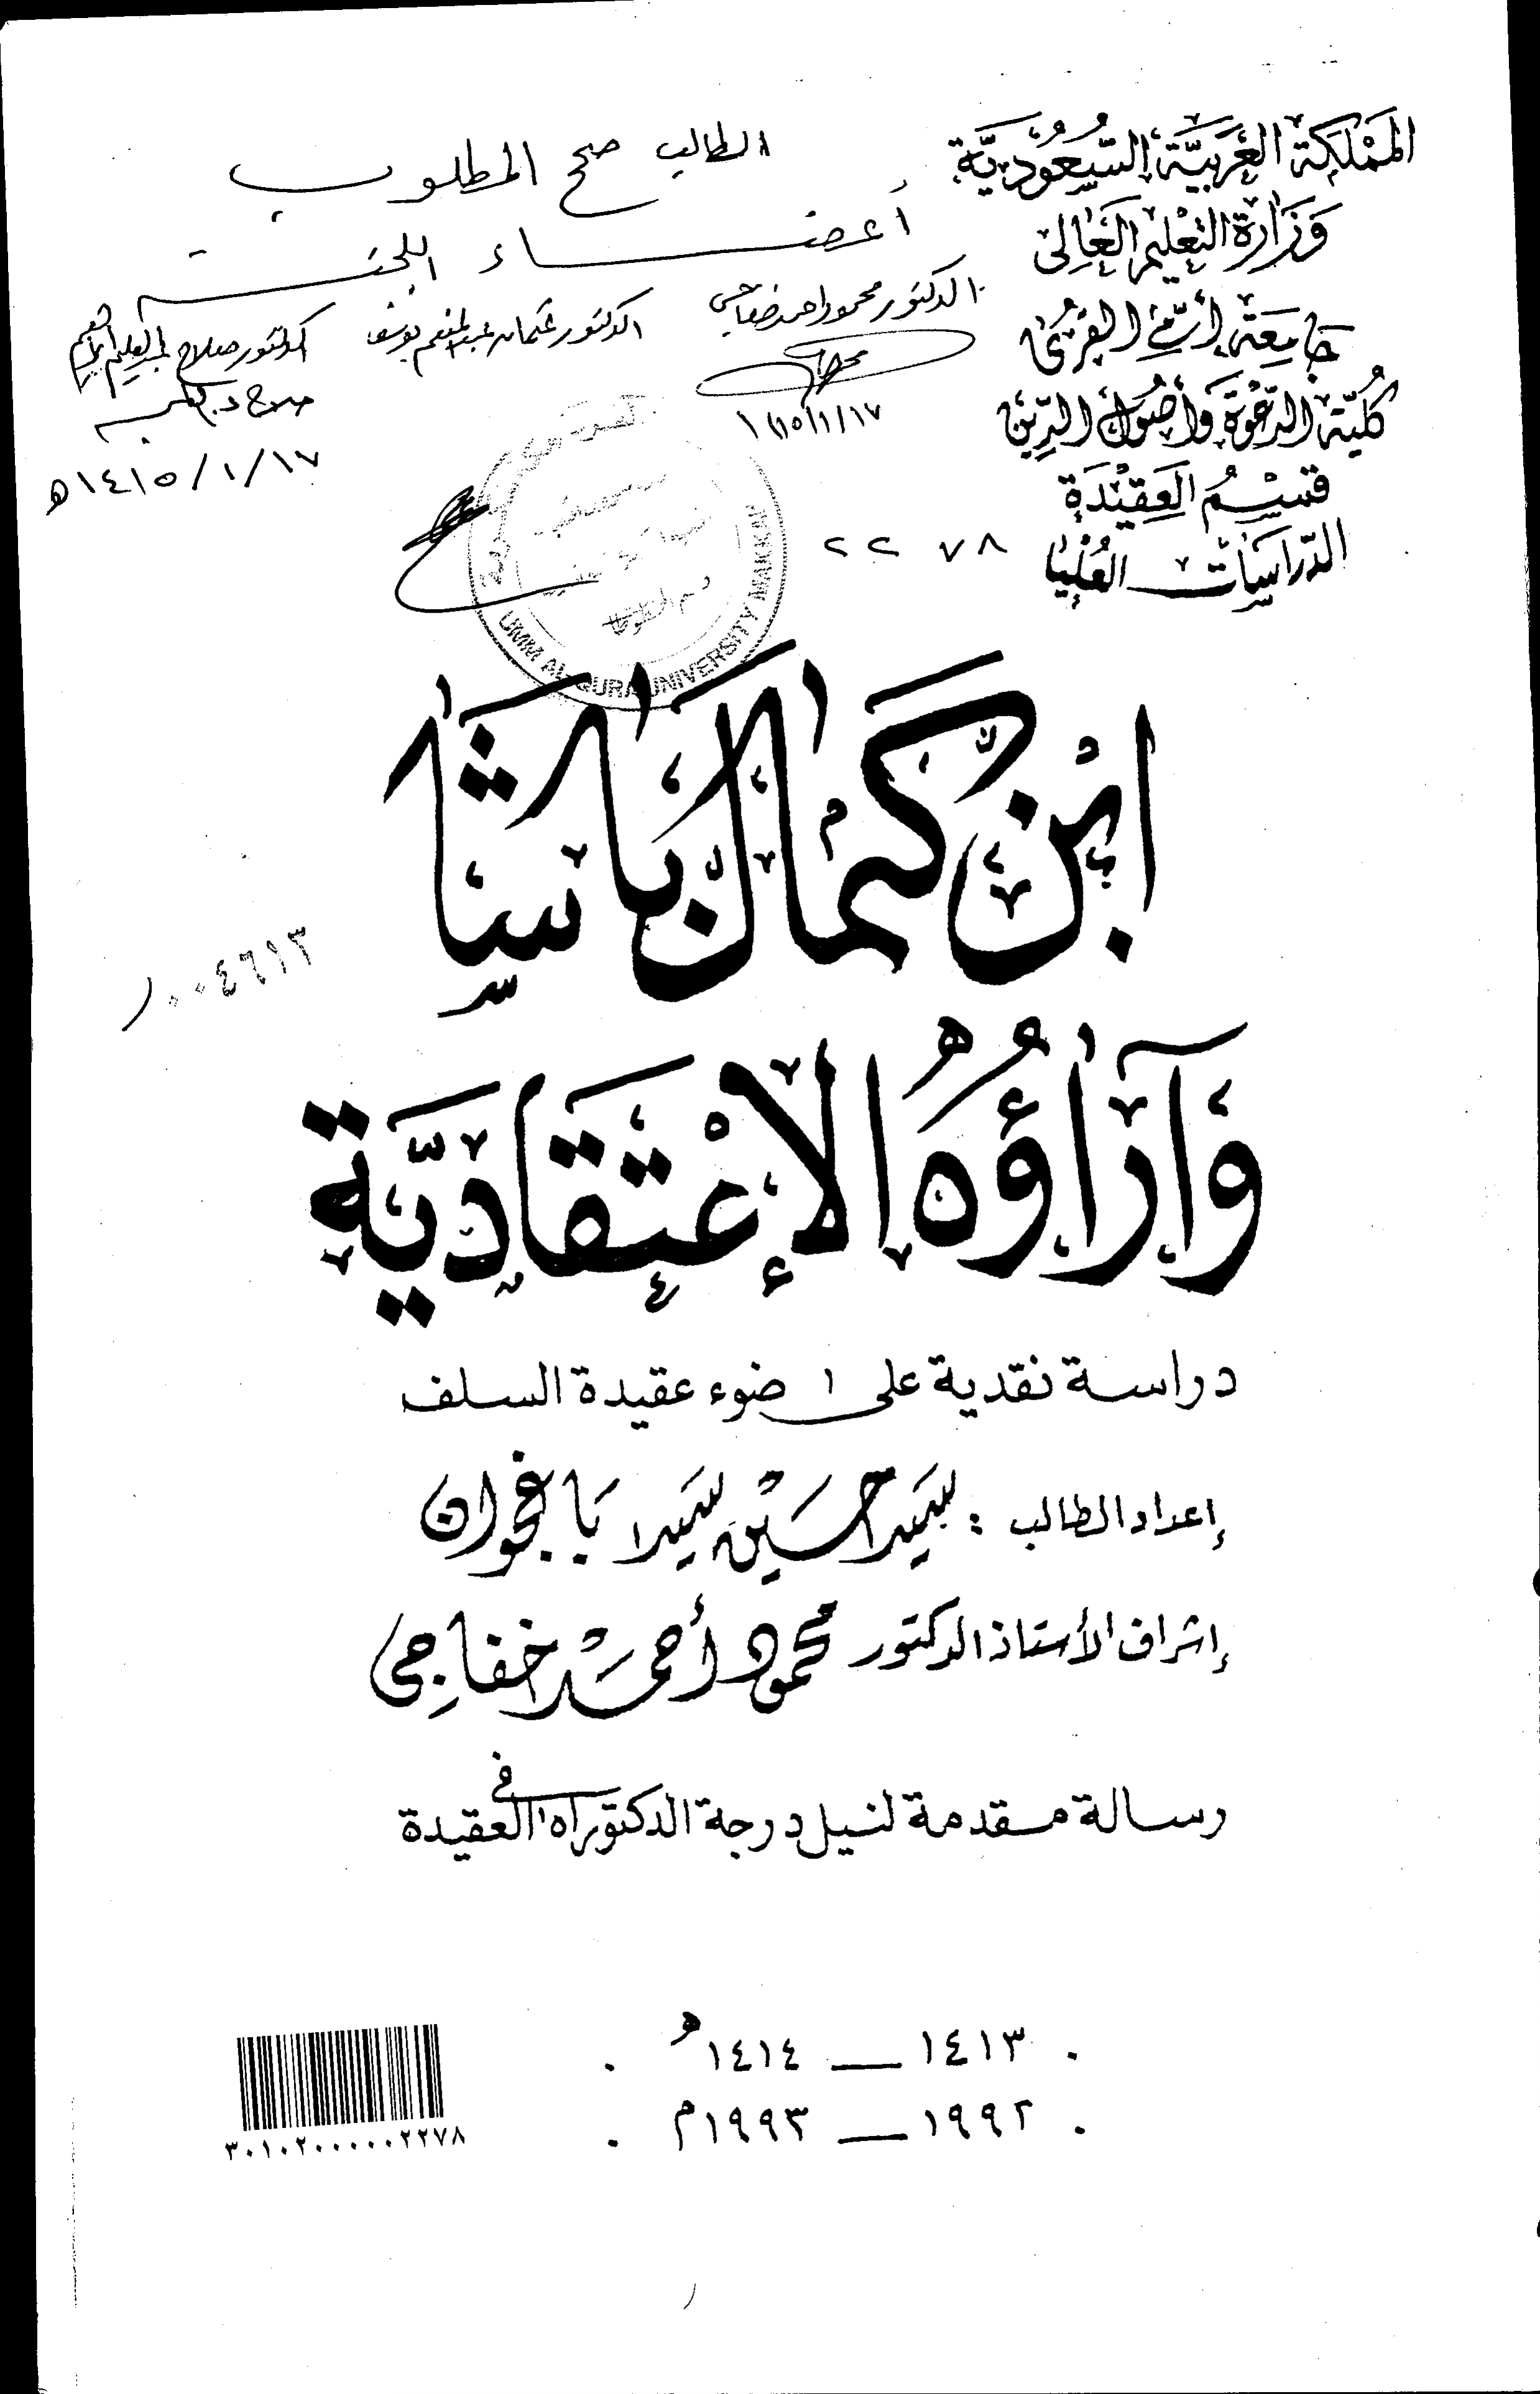 المَمْلَكَة العَرَبيَّة السَّعُوديَّة
وَزَارَة التعْليم العَالي
جَامِعَة أمّ القُرَى
كُليّة الدّعْوَة وأصُول الدّين
قسْمُ العَقيْدَة
الدّراسَات العُليَا
٢٢٧٨
الطالب صحح المطلوب
أعضاء اللجنة
الدكتور محمود احمد خفاجى
الدكتور عثمان عبد المنعم يوسف
الدكتور صلاح عبد العليم إبراهيم
١٤١٥/١/١٧هـ
UMM AL-QURA UNIVERSITY MAKKAH
ابْن كَمَال بَاشَا
وَآرَاؤُهُ الإعْتِقَادِيَّة
دراسة نقدية على ضوء عقيدة السلف
إعداد الطالب : سَيد حسَيْن سَيد بَاغجوان
إشراف الأستاذ الدكتور محمود أحمَد خفاجِي
رسالة مقدمة لنيل درجة الدكتوراه في العقيدة
١٤١٣ — ١٤١٤هـ
١٩٩٢ — ١٩٩٣م
٣٠١٠٢٠٠٠٠٠٢٢٧٨